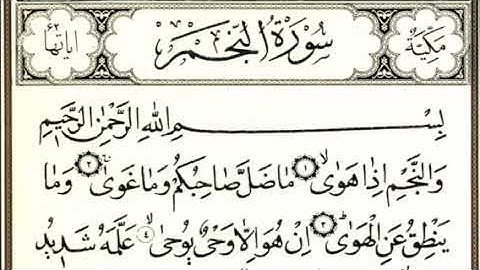 مَكِّيَّةٌ سُورَةُ النَّجْمِ اٰيَاتُهَا ٦٢
بِسْمِ اللهِ الرَّحْمٰنِ الرَّحِيْمِ
وَالنَّجْمِ اِذَا هَوٰىۙ ١ مَا ضَلَّ صَاحِبُكُمْ وَمَا غَوٰىۚ ٢ وَمَا
يَنْطِقُ عَنِ الْهَوٰىؕ ٣ اِنْ هُوَ اِلَّا وَحْیٌ يُّوحٰىۙ ٤ عَلَّمَهٗ شَدِيْدُ